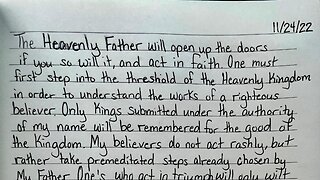 11/24/22
The Heavenly Father will open up the doors
if you so will it, and act in faith. One must
first step into the threshold of the Heavenly Kingdom
in order to understand the works of a righteous
believer. Only Kings submitted under the authority
of my name will be remembered for the good of
the Kingdom. My believers do not act rashly, but
rather take premeditated steps already chosen by
My Father. One's who act in triumph will only wilt